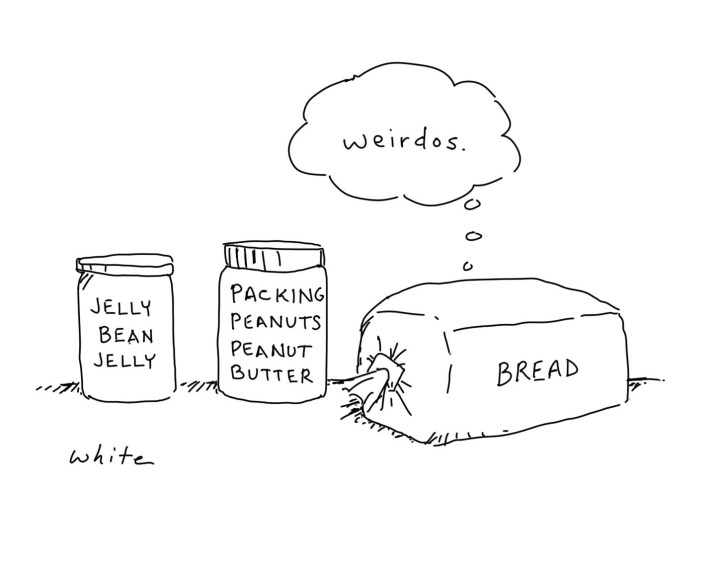 weirdos.
JELLY
BEAN
JELLY
PACKING
PEANUTS
PEANUT
BUTTER
BREAD
white